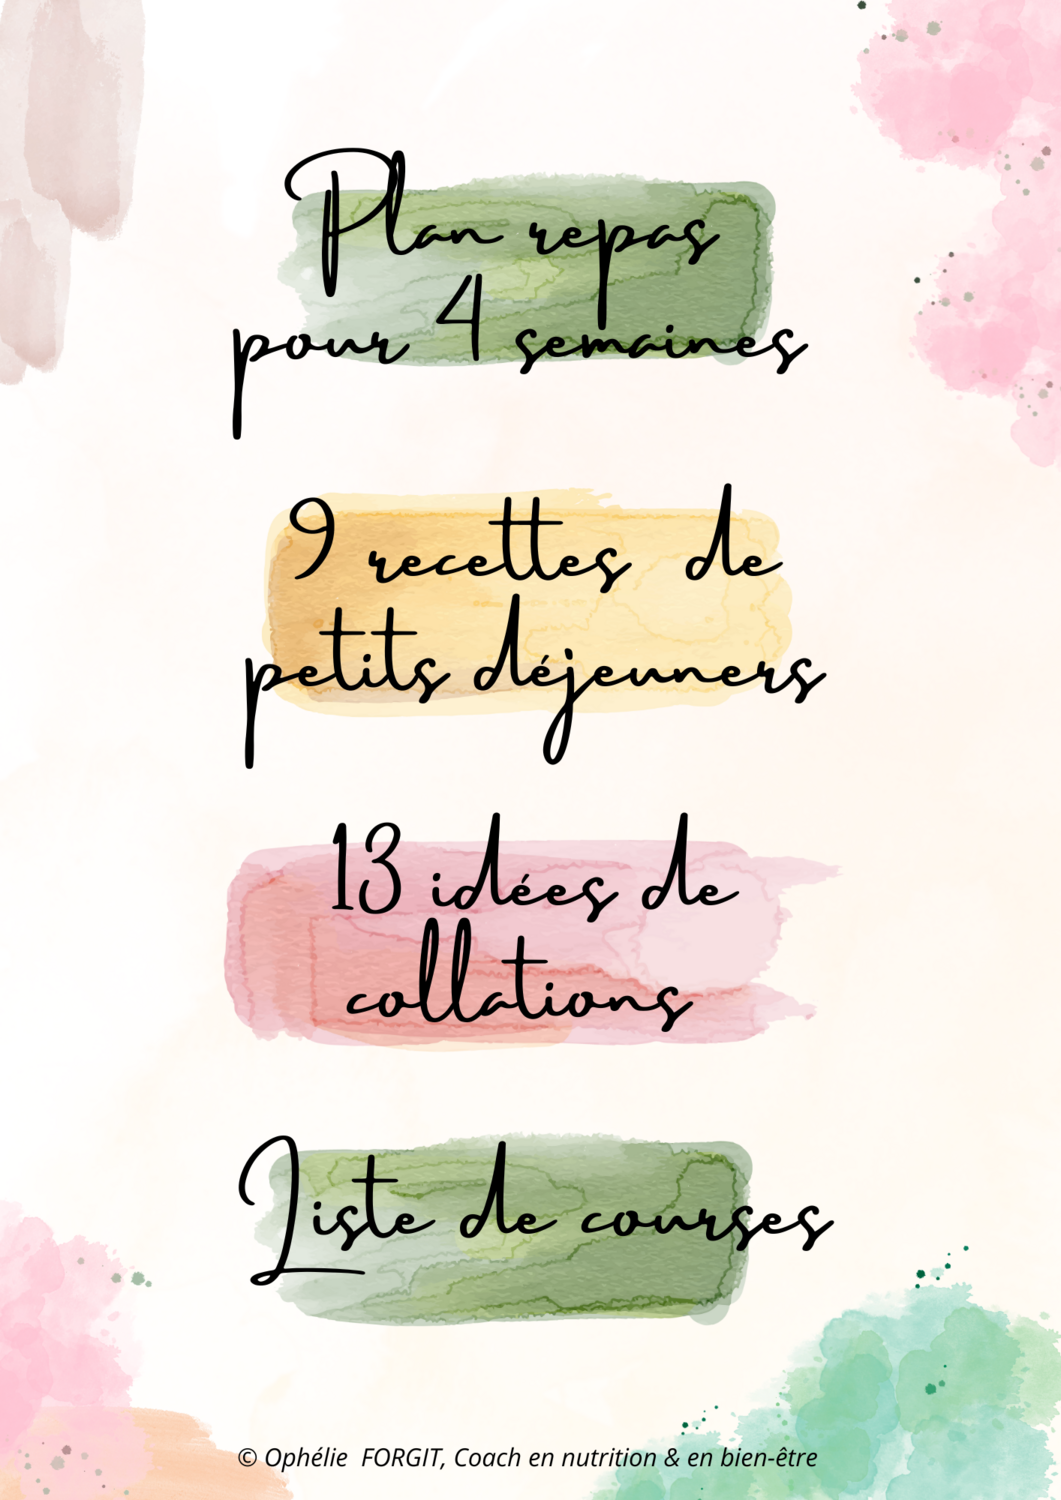 Plan repas
pour 4 semaines
9 recettes de
petits déjeuners
13 idées de
collations
Liste de courses
© Ophélie FORGIT, Coach en nutrition & en bien-être